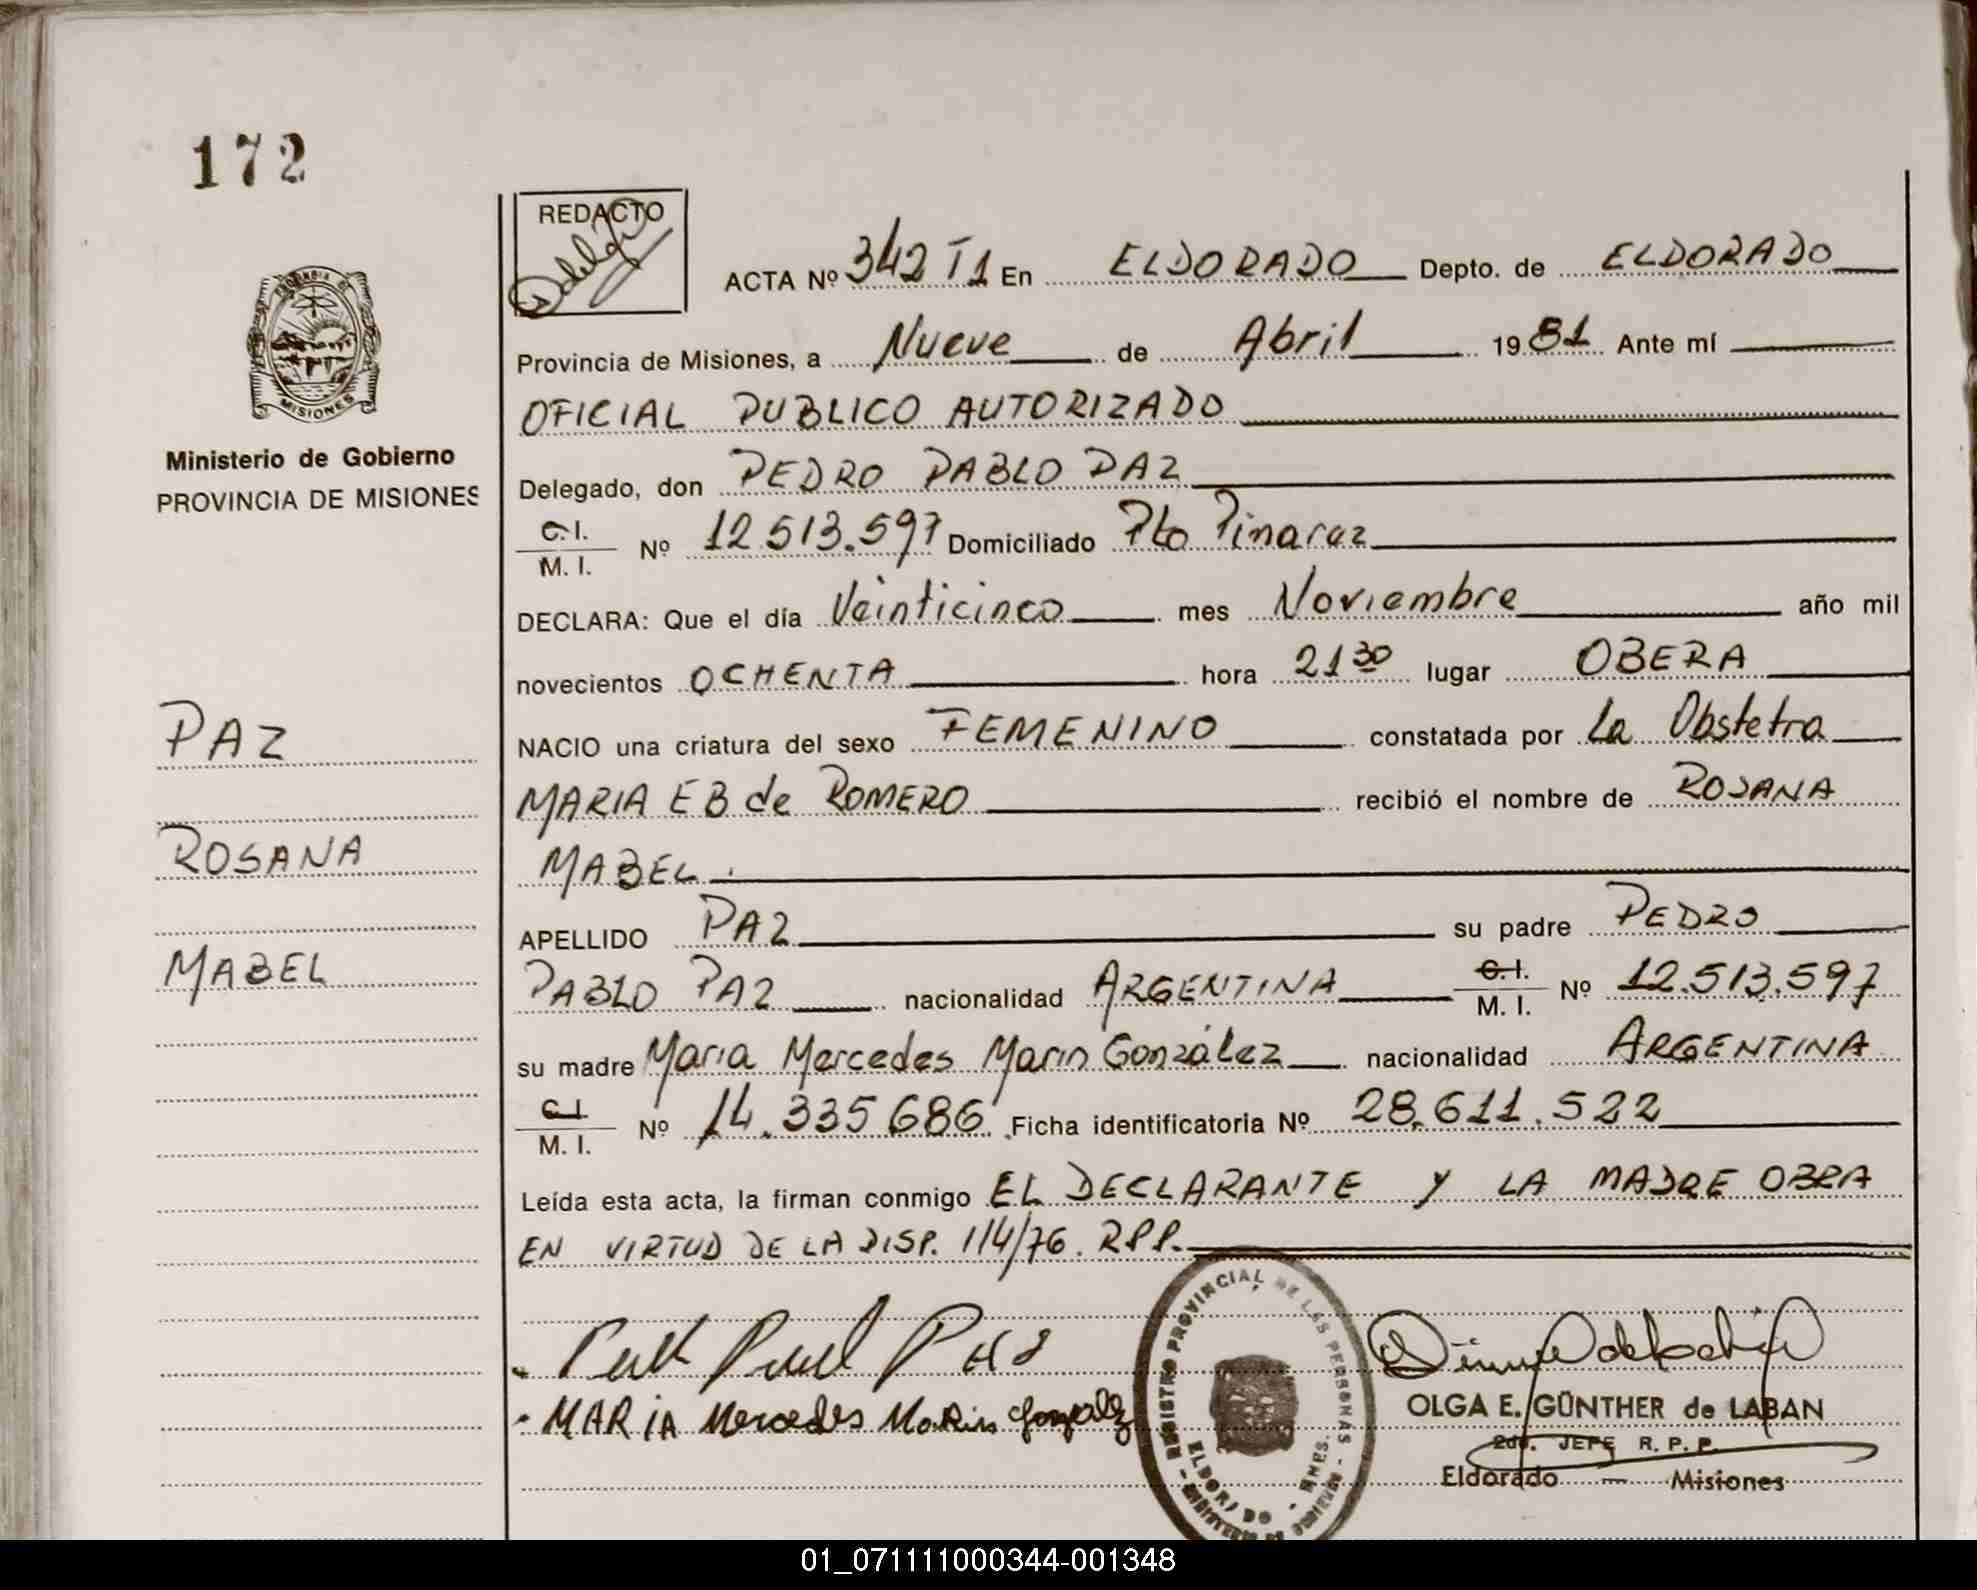 172
REDACTO
ACTA Nº 342 T1 En ELDORADO Depto. de ELDORADO
Provincia de Misiones, a Nueve de Abril 1981 Ante mí
OFICIAL PUBLICO AUTORIZADO
Delegado, don PEDRO PABLO PAZ
C. I.
M. I. Nº 12.513.597 Domiciliado Pto Pinarez
DECLARA: Que el día Veinticinco mes Noviembre año mil
novecientos OCHENTA hora 21 30 lugar OBERA
NACIO una criatura del sexo FEMENINO constatada por La Obstetra
MARIA E B de ROMERO recibió el nombre de ROSANA
MABEL.
APELLIDO PAZ su padre PEDRO
PABLO PAZ nacionalidad ARGENTINA C. I. M. I. Nº 12.513.597
su madre Maria Mercedes Marin González nacionalidad ARGENTINA
C. I.
M. I. Nº 14.335686 Ficha identificatoria Nº 28.611.522
Leída esta acta, la firman conmigo EL DECLARANTE Y LA MADRE OBRA
EN VIRTUD DE LA DISP. 114/76. RPP.
MARIA Mercedes MaRin Gonzalez
OLGA E. GÜNTHER de LABAN
2do. JEFE R. P. P.
Eldorado — Misiones
REGISTRO PROVINCIAL DE LAS PERSONAS
ELDORADO - MNES.
MINISTERIO DE GOBIERNO
PROVINCIA DE
MISIONES
Ministerio de Gobierno
PROVINCIA DE MISIONES
PAZ
ROSANA
MABEL
01_071111000344-001348